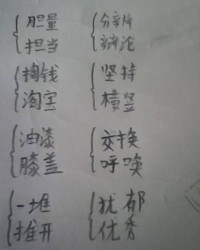 胆量 分辨
担当 辩论
掏钱 坚持
淘宝 横竖
油漆 交换
膝盖 呼唤
一堆 犹郁
推开 优秀